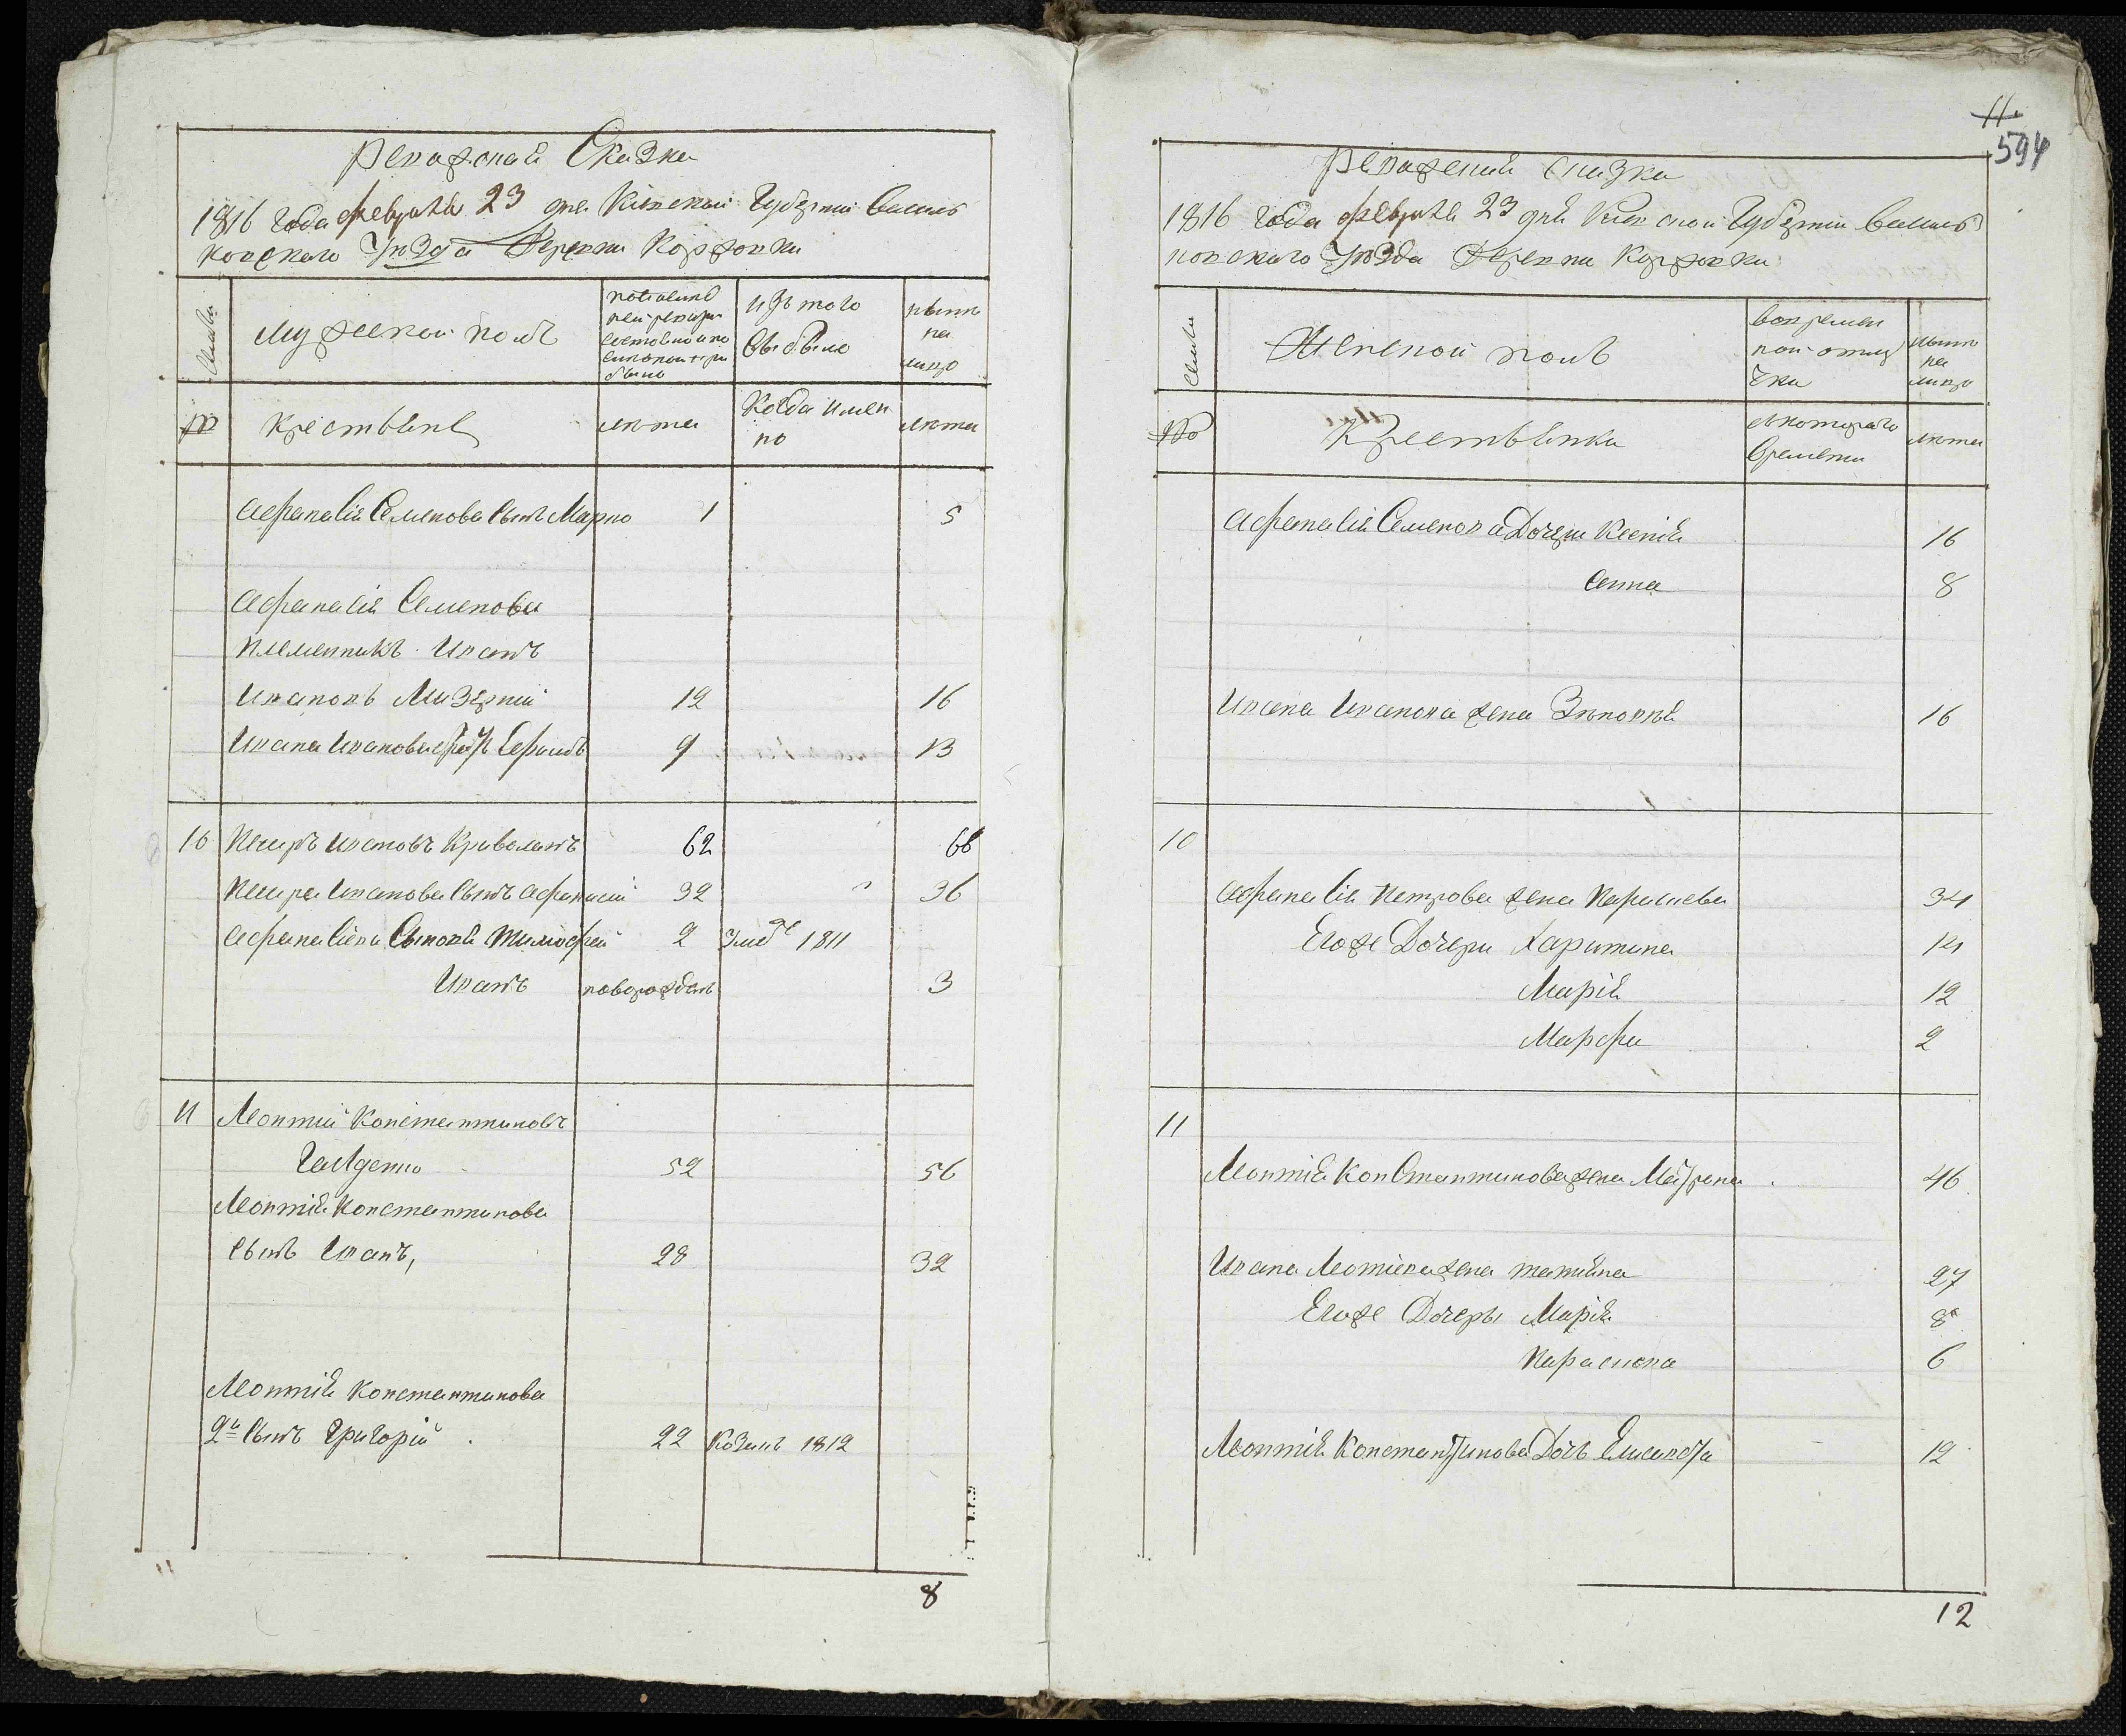 Ревизская Сказка
1816 Года февраля 23 дня Кіевской Губерніи Василь
ковского Уѣзда Деревни Коржовки
Семьи
Мужеской полъ
по последней ревизіи состояло и по оной прибыло
изъ того
выбыло
нынѣ
на
лицо
№
Крестьяне
лѣта
Когда имен
но
лѣта
Афанасія Семенова сынъ Марко 1 5
Афанасія Семенова
племенникъ Иванъ
Ивановъ Мизерній 12 16
Ивана Иванова братъ Ефимъ 9 13
10 Петръ Ивановъ Криволапъ 62 66
Петра Иванова сынъ Афанасій 32 36
Афанасіева Сыновя Тимофей 2 Умре 1811
Иванъ новорожденъ 3
11 Леонтій Константиновъ
52 56
Леонтія Константинова
сынъ Иванъ, 28 32
Леонтія Константинова
2й Сынъ Григорій 22 1812
8
11
594
Ревизская сказка
1816 Года февраля 23 дня Кіевской Губерніи Василь
ковского Уѣзда Деревни Коржовки
Семьи
Женской полъ
во времен
ной отлу
чки
нынѣ
на
лицо
№
Крестьянки
съ котораго
времени
лѣта
Афанасія Семенова Дочери Ксенія 16
Анна 8
Ивана Иванова жена Зѣновія 16
10
Афанасія Петрова жена Параскева 34
Егоже Дочери Харитина 14
Марія 12
Марфа 2
11
Леонтія Константинова жена Матрена 46
Ивана Леонтіева жена татіяна 27
Егоже Дочеры Марія 8
Параскева 6
Леонтія Константинова Дочь Елисавета 12
12